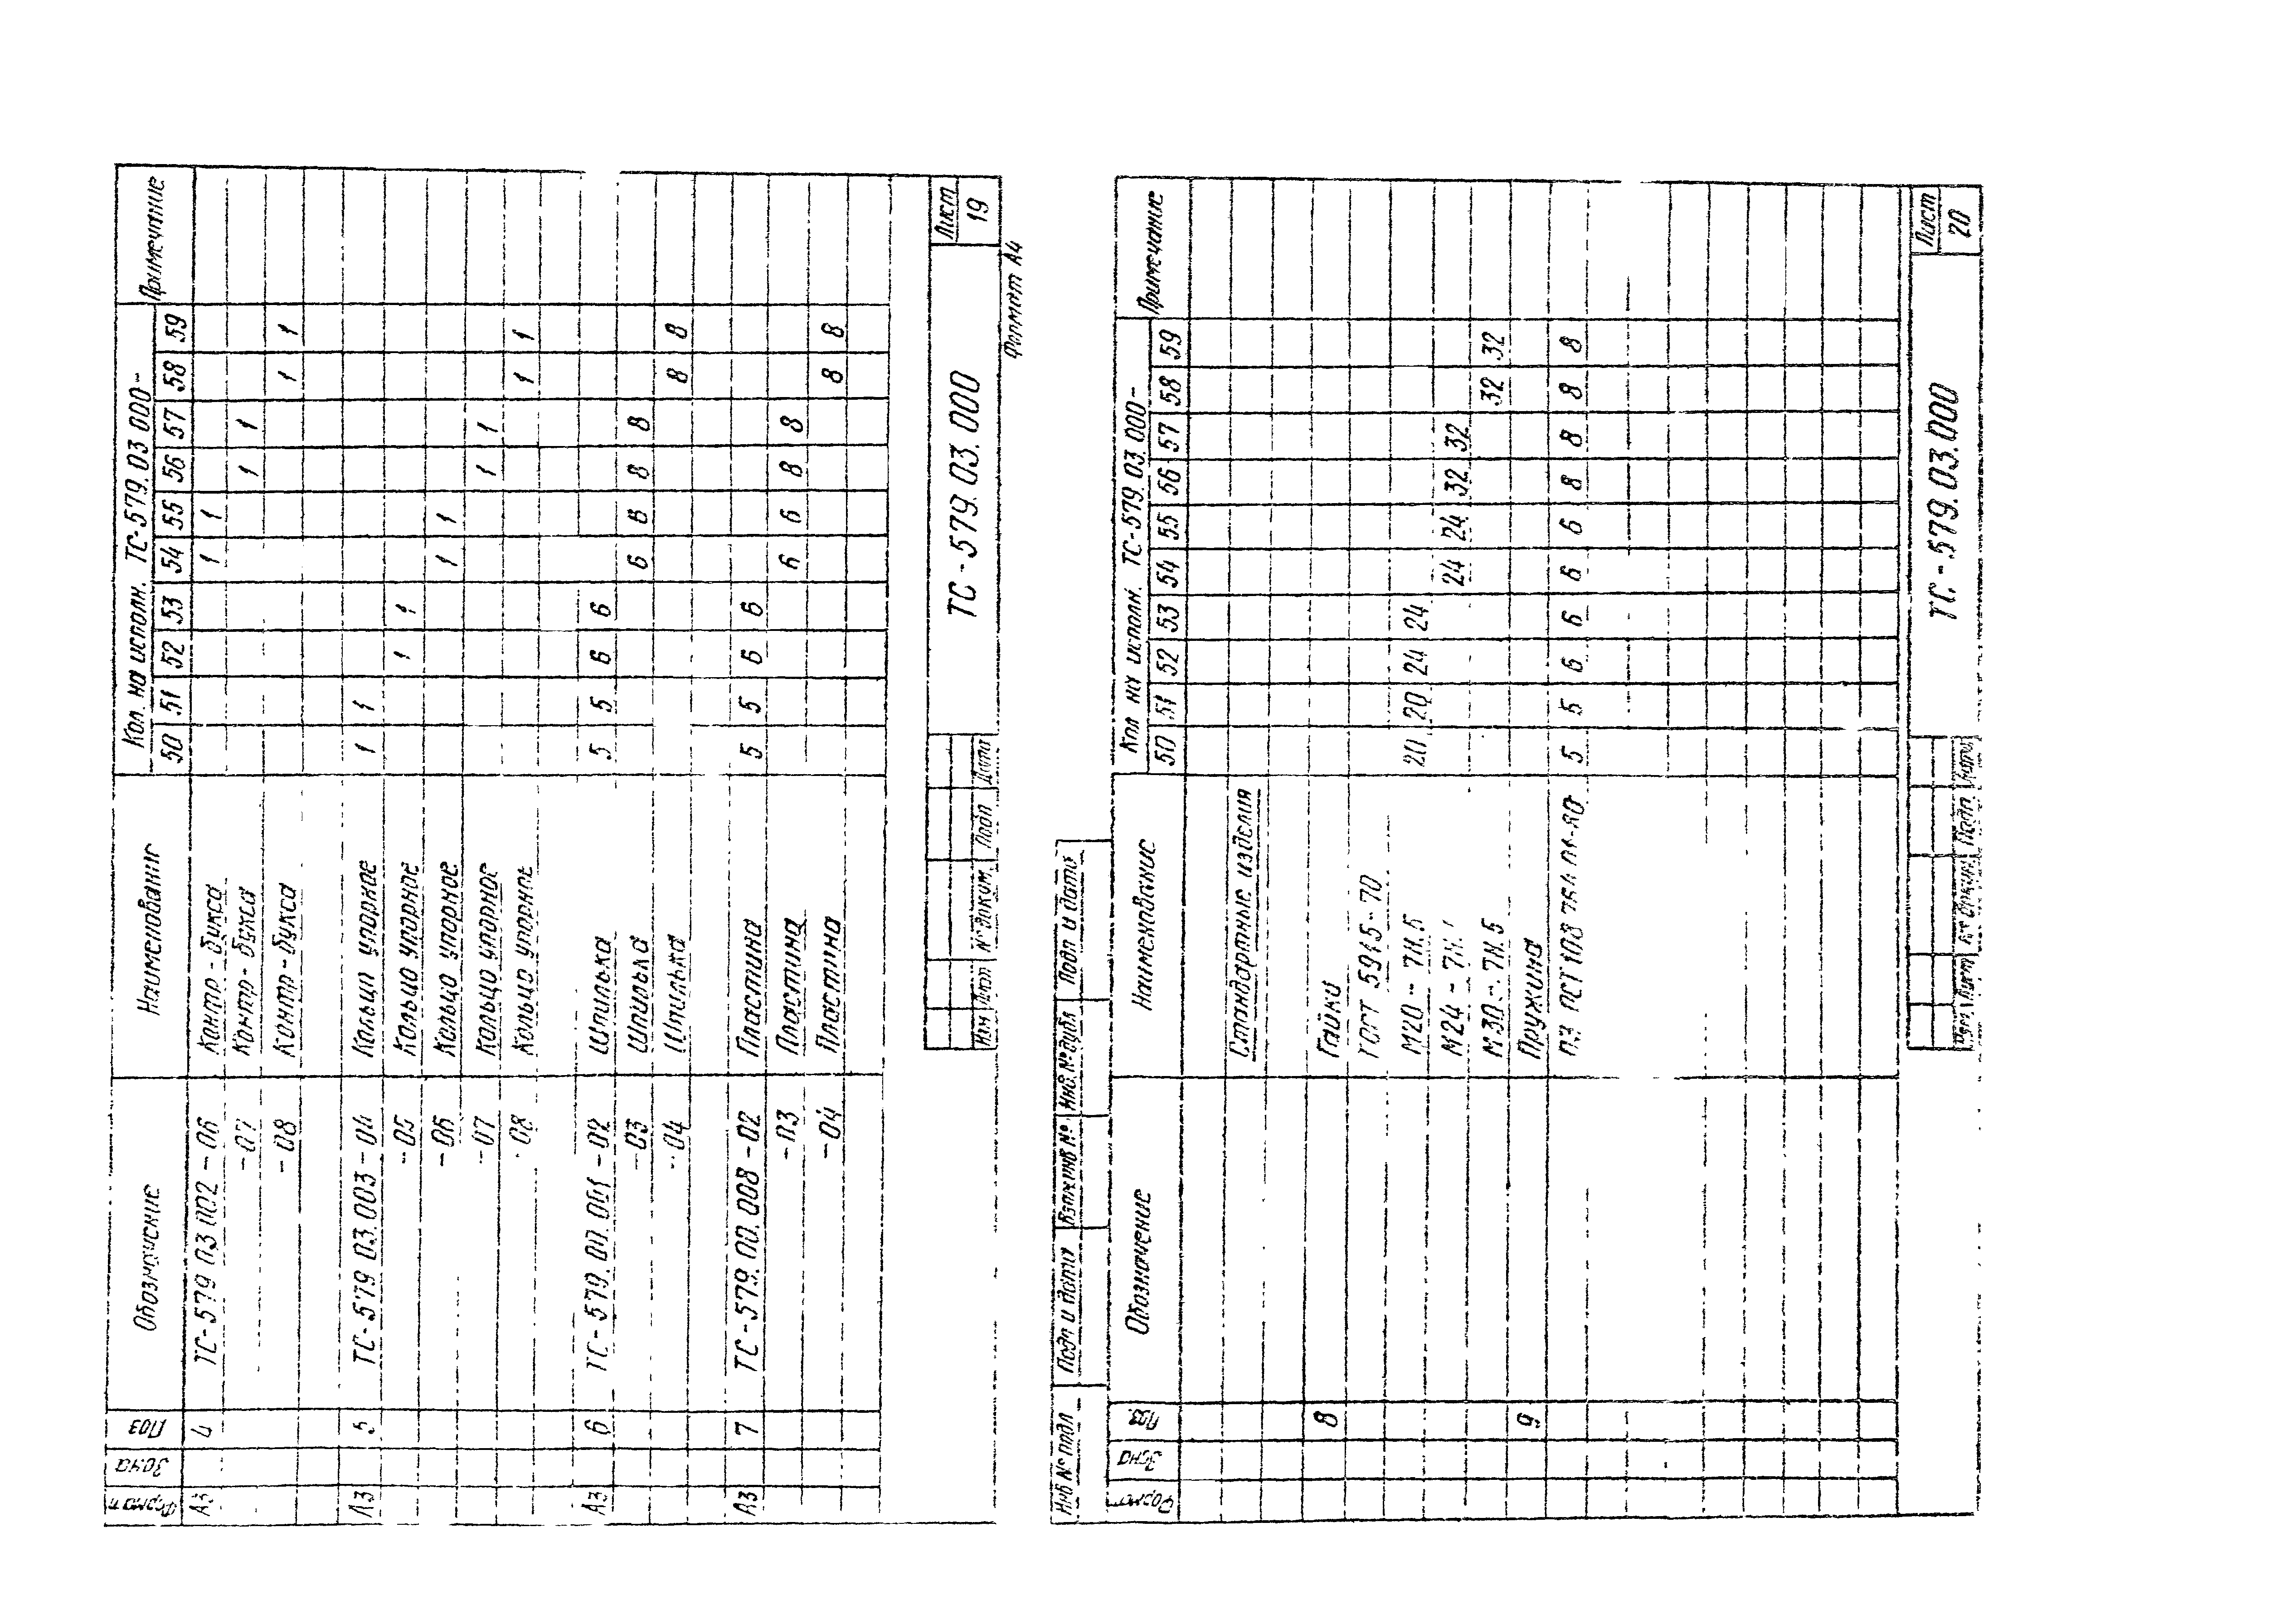 Формат Зона Поз Обозначение Наименование Кол. на исполн. ТС-579.03 000- Примечание
50 51 52 53 54 55 56 57 58 59
А3 4 ТС-579 03 002-06 Контр-букса 1 1
-07 Контр-букса 1 1
-08 Контр-букса 1 1
А3 5 ТС-579 03.003-04 Кольцо упорное 1 1
-05 Кольцо упорное 1 1
-06 Кольцо упорное 1 1
-07 Кольцо упорное 1 1
-08 Кольцо упорное 1 1
А3 6 ТС-579.00.001-02 Шпилька 5 5 6 6
-03 Шпилька 6 6 8 8
-04 Шпилька 8 8
А3 7 ТС-579.00.008-02 Пластина 5 5 6 6
-03 Пластина 6 6 8 8
-04 Пластина 8 8
Изм Лист № докум. Подп Дата ТС-579.03.000 Лист 19
Формат А4
Инв № подл Подп и дата Взам инв № Инв. № дубл Подп и дата
Формат Зона Поз. Обозначение Наименование Кол на исполн. ТС-579.03.000- Примечание
50 51 52 53 54 55 56 57 58 59
Стандартные изделия
8 Гайки
ГОСТ 5915-70
М20-7Н.5 20 20 24 24
М24-7Н. 24 24 32 32
М30-7Н.5 32 32
9 Пружина
03 ОСТ 108 764 01-80 5 5 6 6 6 6 8 8 8 8
Изм. Лист № докум Подп. Дата ТС-579.03.000 Лист 20